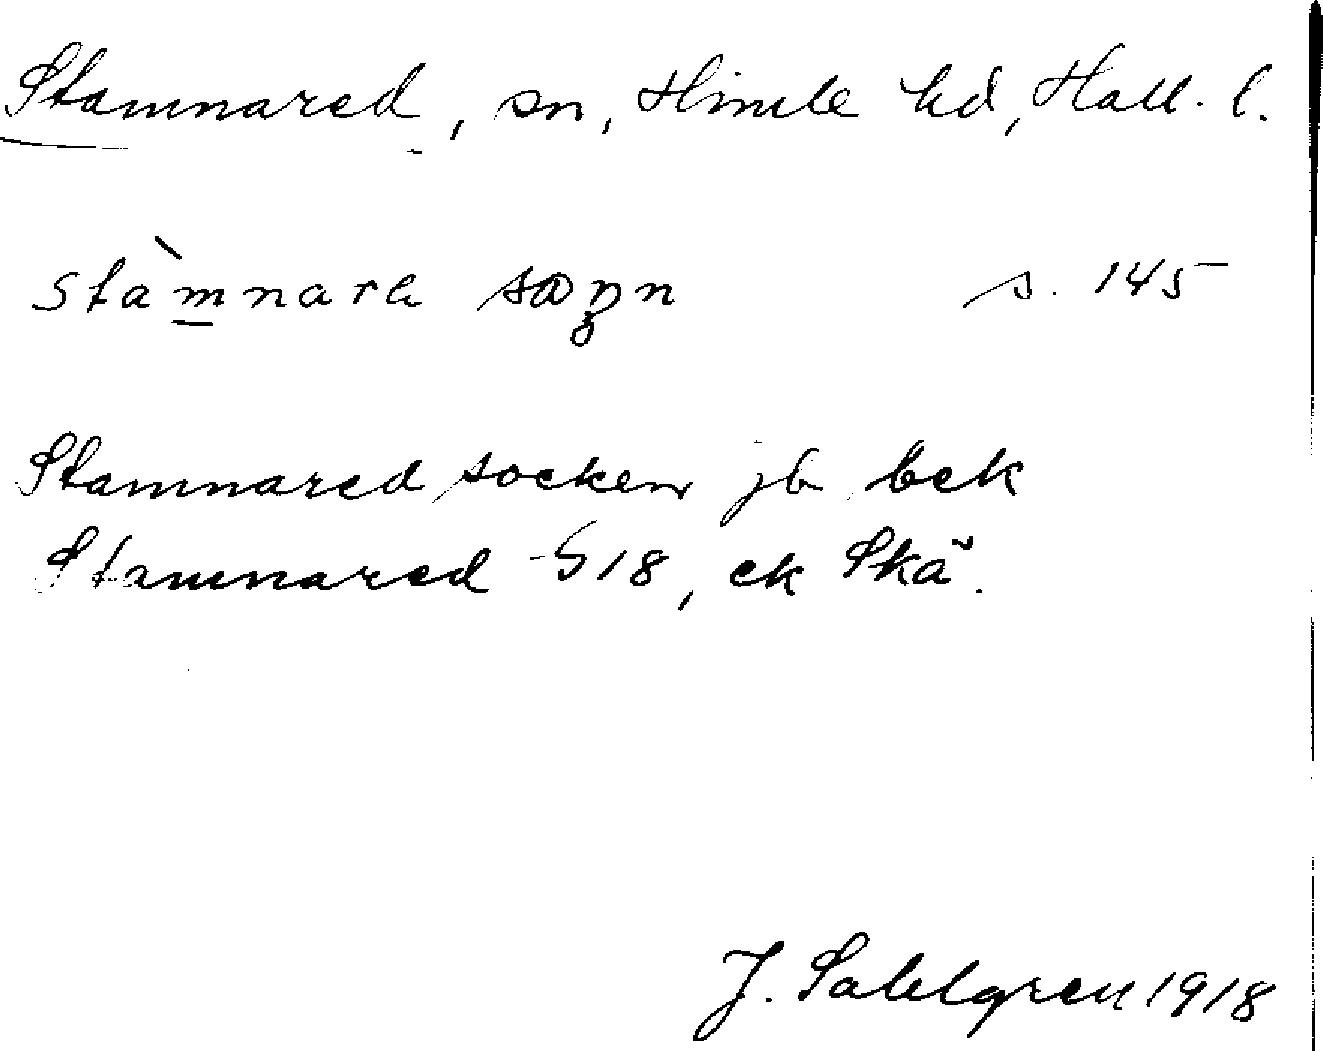 Stamnared, sn, Himle hd, Hall. l.
stàmnara sǫgn s. 145
Stamnared socken jb bek
Stamnared -518, ek Skă.
J. Sahlgren 1918